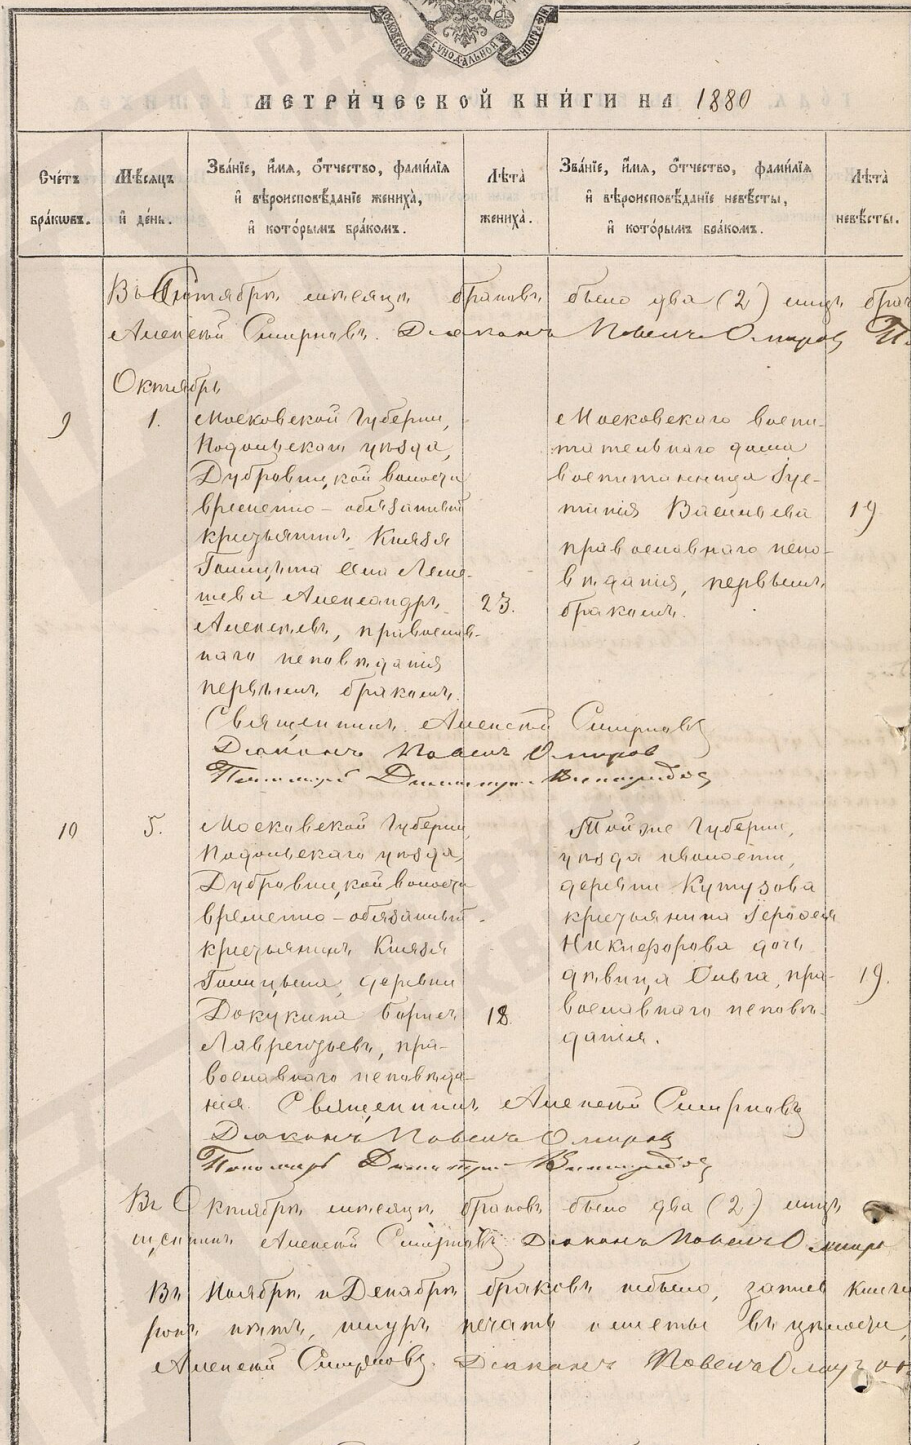 МОСКОВСКОЙ СУНОДАЛЬНОЙ ТУПОГРАФІИ
МЕТРИ́ЧЕСКОЙ КНИ́ГИ НА 1880
Сче́тъ бра́кωвъ.
Мѣ́сяцъ и҆ де́нь.
Зва́нїе, и҆́мя, ѻ҆́тчество, фами́лїя и҆ вѣроисповѣ́данїе жениха̀, и҆ кото́рымъ бра́комъ.
Лѣ́та жениха̀.
Зва́нїе, и҆́мя, ѻ҆́тчество, фами́лїя и҆ вѣроисповѣ́данїе невѣ́сты, и҆ кото́рымъ бра́комъ.
Лѣ́та невѣ́сты.
Въ Сентябрѣ мѣсяцѣ браковъ было два (2)
Алексѣй Смирновъ. Діаконъ Павелъ
Октябрь
9
1.
Московской Губерніи,
Подольскаго уѣзда,
Дубровицкой волости
временно-обязанный
крестьянинъ Князя
Голицына села Леме-
шева Александръ
Алексѣевъ, православ-
наго исповѣданія
первымъ бракомъ.
23.
Московскаго воспи-
тательнаго дома
воспитанница
Васильева
православнаго испо-
вѣданія, первымъ
бракомъ.
19
Священникъ Алексѣй Смирновъ
Діаконъ Павелъ
Пономарь Димитрій Виноградовъ
10
5.
Московской Губерніи,
Подольскаго уѣзда,
Дубровицкой волости
временно-обязанный
крестьянинъ Князя
Голицына, деревни
Докукина Борисъ
Лаврентьевъ, пра-
вославнаго исповѣда-
нія.
18.
Той же Губерніи,
уѣзда и волости,
деревни Кутузова
крестьянина
Никифорова дочь
дѣвица Ольга, пра-
вославнаго исповѣ-
данія.
19.
Священникъ Алексѣй Смирновъ
Діаконъ Павелъ
Пономарь Димитрій Виноградовъ
Въ Октябрѣ мѣсяцѣ браковъ было два (2)
Алексѣй Смирновъ Діаконъ Павелъ
Въ Ноябрѣ и Декабрѣ браковъ небыло,
нѣтъ, шнуръ печать и листы въ цѣлости,
Алексѣй Смирновъ. Діаконъ Павелъ